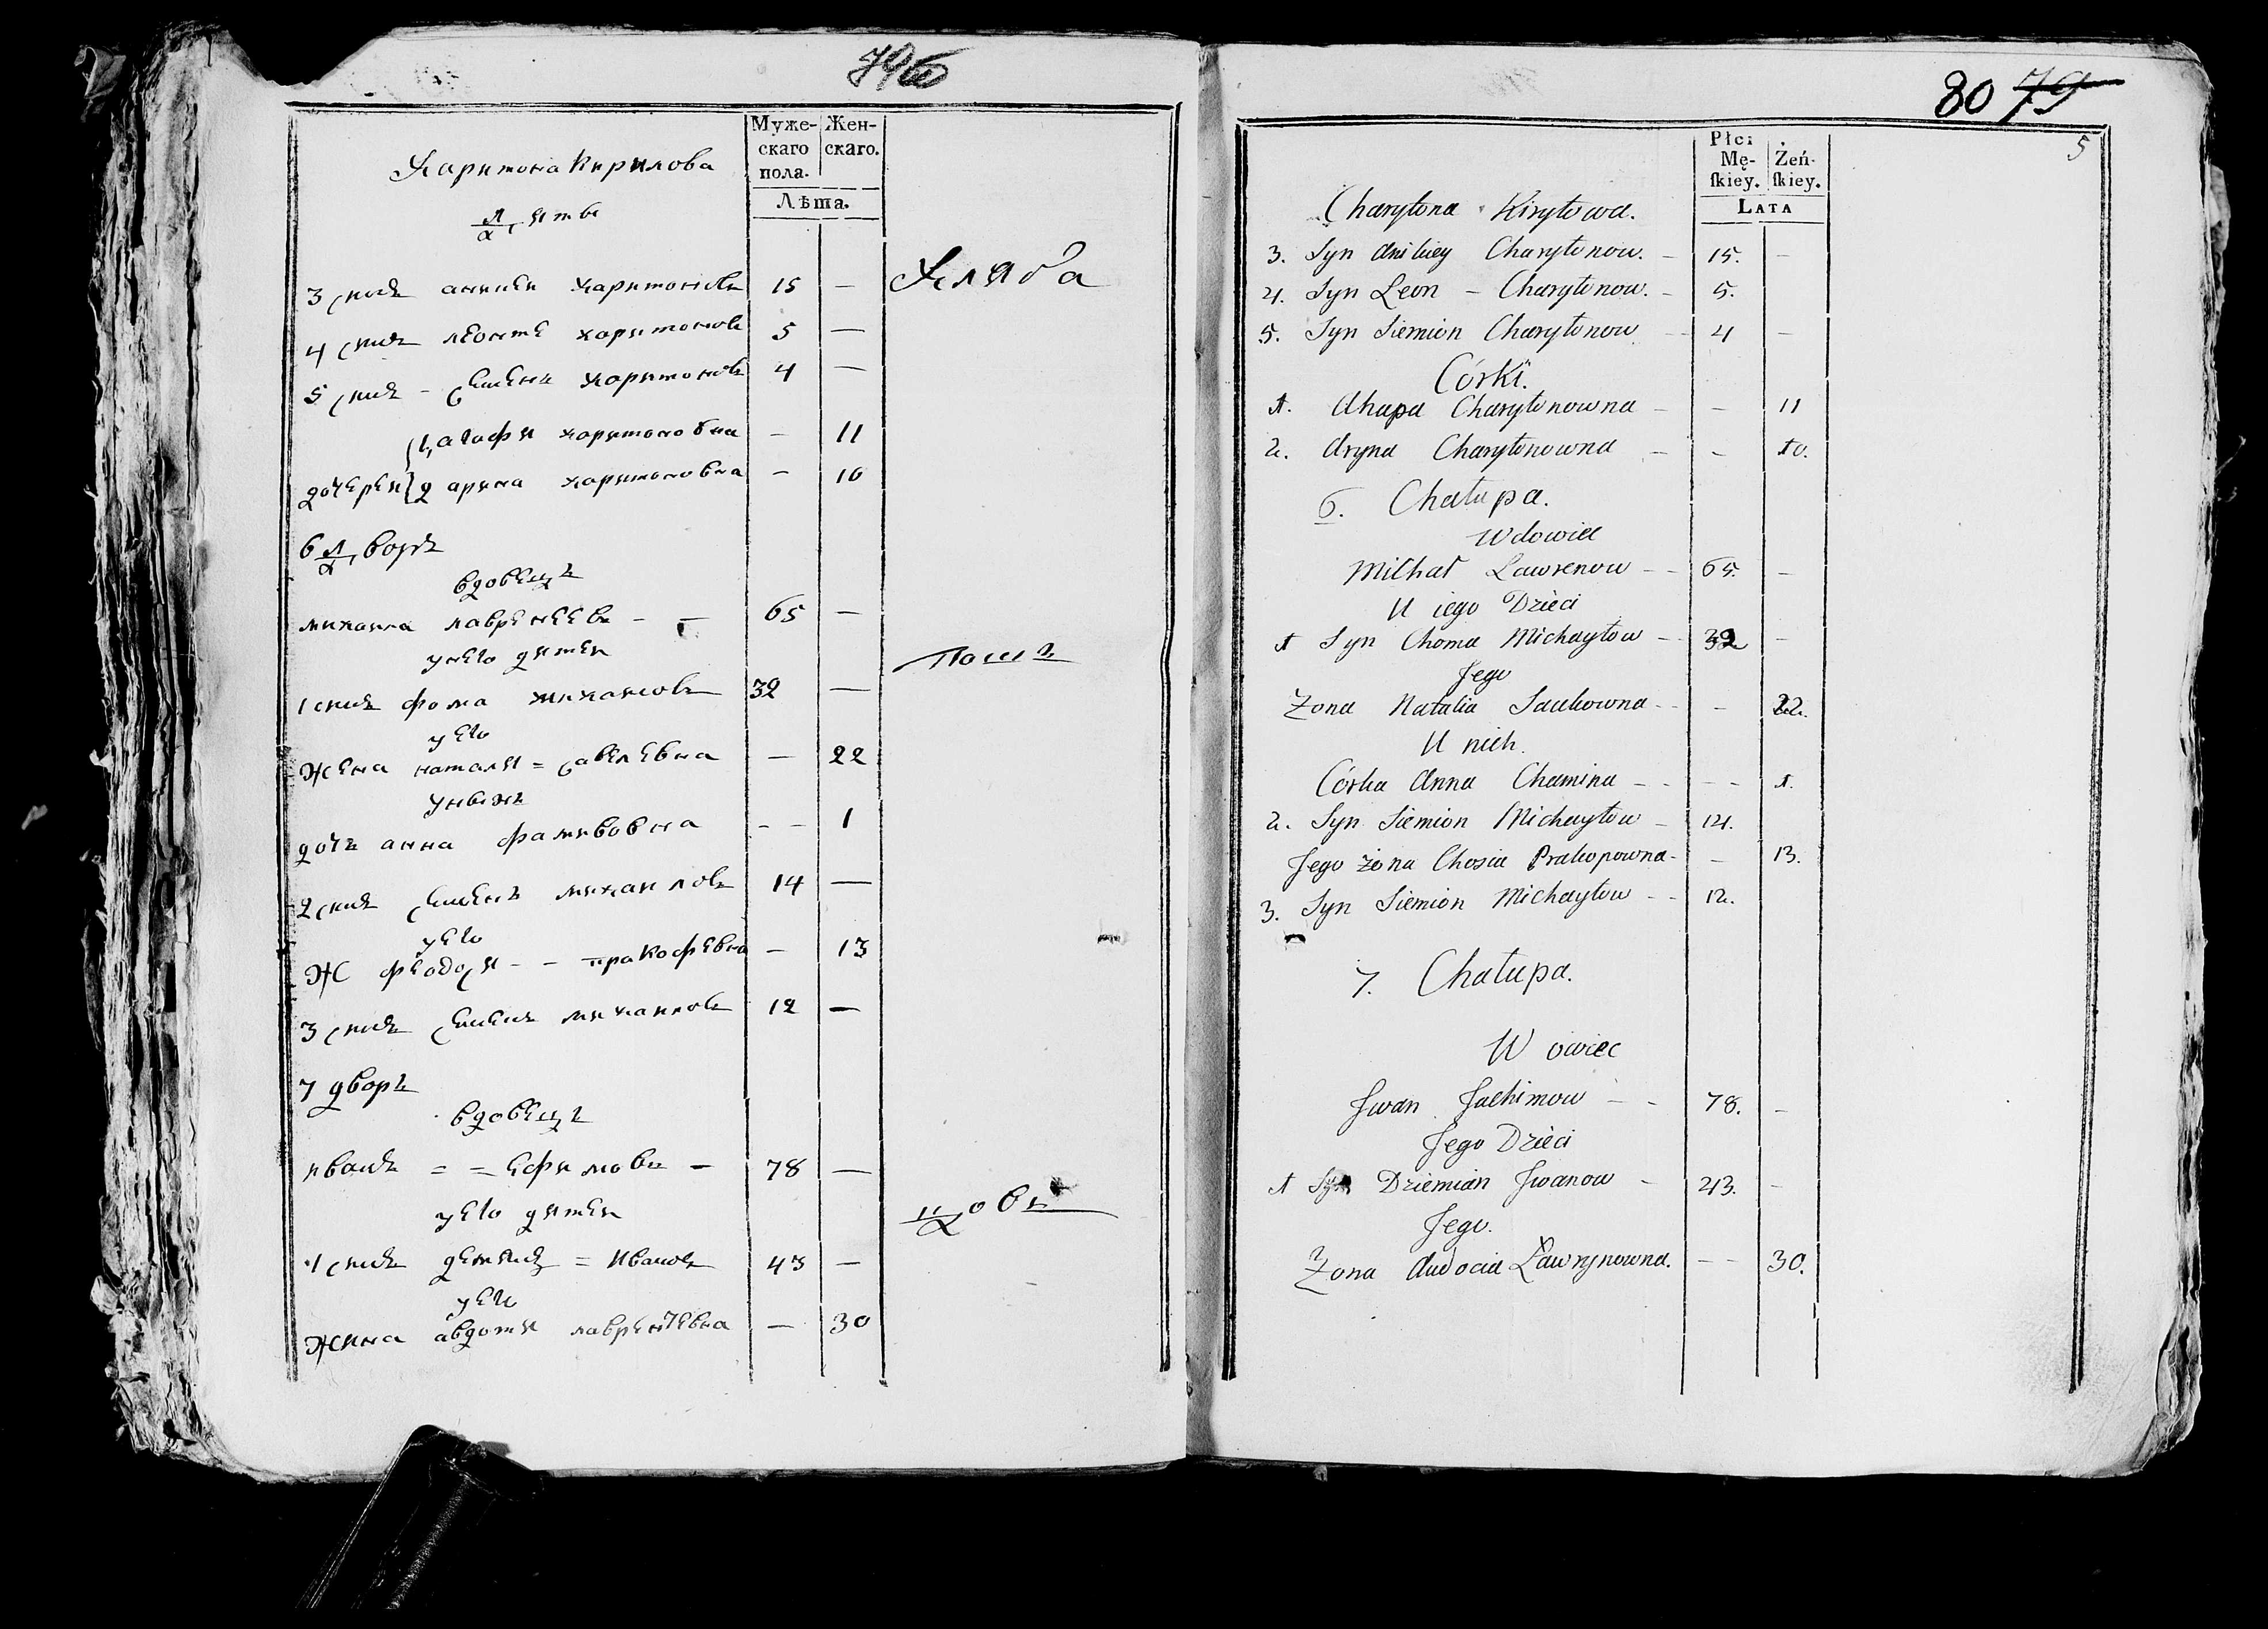 79об
Муже- Жен-
скаго скаго.
пола.
Лѣта.
Харитона Кирилова
дѣти
3 сынъ аникеи харитоновъ 15 —
Хляба
4 сынъ леонте харитоновъ 5 —
5 сынъ - семенъ харитоновъ 4 —
1, агафя харитоновна — 11
дочереи 2 арина харитоновна — 10
6 дворъ
вдовецъ
михаила лавренеевъ - - 65 —
у него дѣтеи
1 сынъ фома михаиловъ 32 —
у его
жена наталя = савелевна — 22
у нихъ
дочь анна фамивовна - - 1
2 сынъ семенъ михаиловъ 14 —
у его
ж феодося - - пракофевна — 13
3 сынъ семенъ михаиловъ 12 —
7 дворъ
вдовецъ
иванъ = = ефимовъ — 78 —
у его дѣтеи
1 сынъ демянъ = Ивановъ 43 —
у его
жена авдотя лаврентевна — 30
80 79
5
Płci
Mę- Żeń-
ſkiey. ſkiey.
LATA
Charytona Kiryłowa.
3. Syn Anikiey Charytonow. - 15. -
4. Syn Leon - Charytonow. - 5.
5. Syn Siemion Charytonow - 4 -
Córki.
1. Ahapa Charytonowna - - 11
2. Aryna Charytonowna - - 10.
6. Chałupa.
Wdowiec
Michał Lawrenow - - 65. -
U iego Dzieci
1 Syn Choma Michayłow - - 32 -
Jego
Zona Natalia Saukowna - - - 22.
U nich.
Córka Anna Chamina - - - - 1.
2. Syn Siemion Michayłow - 14.
Jego żona Chosia Prakopowna - - 13.
3. Syn Siemion Michayłow - - 12.
7. Chałupa.
W owiec
Jwan Jachimow - - 78. -
Jego Dzieci
1 Syn Dziemian Jwanow - 43. -
Jego.
Zona Audocia Ławrynowna. - - 30.